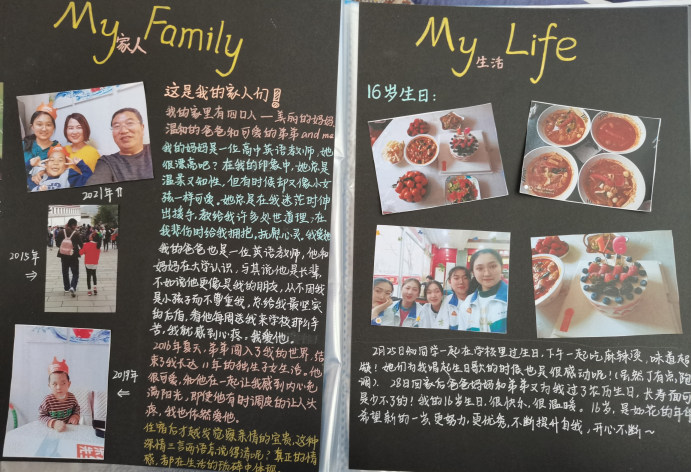 My Family
家人
这是我的家人们!
我的家里有四口人——美丽的妈妈
温和的爸爸和可爱的弟弟 and me
我的妈妈是一位高中英语教师,她
很漂亮吧?在我的印象中,她总是
温柔又知性,但有时候却又像小女
孩一样可爱。她总是在我迷茫时伸
出援手,教给我许多处世道理;在
我悲伤时给我拥抱,抚慰心灵。我爱她
我的爸爸也是一位英语教师,他和
妈妈在大学认识,与其说他是长辈,
不如说他更像是我的朋友,从不因我
是小孩子而不尊重我,总给我最坚实
的后盾,看他每周送我来学校那么辛
苦,我就感到心疼,我爱他。
2016年夏天,弟弟闯入了我的世界,结
束了我长达11年的独生子女生活。他
很可爱,和他在一起让我感到内心充
满阳光,即使他有时调皮的让人头
疼,我也依然爱他。
住宿后才越发觉得亲情的宝贵,这种
深情三言两语怎说得清呢?真正的情
感,都在生活的琐碎中体现。
2021年
2015年
2019年
My Life
生活
16岁生日:
2月25日和同学一起在学校里过生日,下午一起吃麻辣烫,味道超
级!她们为我唱起生日歌的时候也是很感动呢!(虽然了有点跑
调)。28日回家后爸爸妈妈和弟弟又为我过了农历生日,长寿面可
是少不了的!我的16岁生日,很快乐,很温暖。16岁,是如花的年华
希望新的一岁,更努力,更优秀,不断提升自我,开心不断~